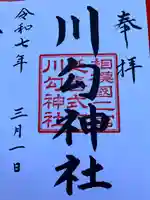 奉拝
川勾神社
相模國二宮
川勾神社
令和七年
三月一日